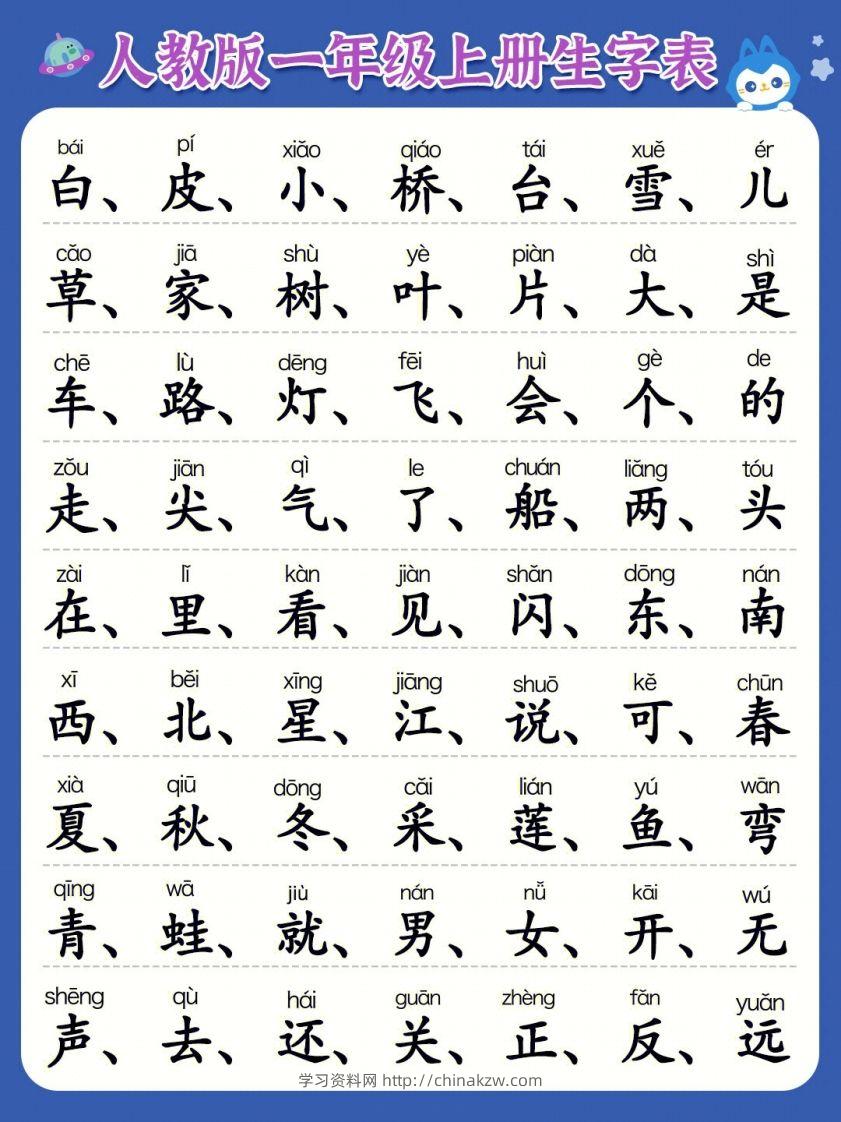 人教版一年级上册生字表
bái pí xiǎo qiáo tái xuě ér
白、皮、小、桥、台、雪、儿
cǎo jiā shù yè piàn dà shì
草、家、树、叶、片、大、是
chē lù dēng fēi huì gè de
车、路、灯、飞、会、个、的
zǒu jiān qì le chuán liǎng tóu
走、尖、气、了、船、两、头
zài lǐ kàn jiàn shǎn dōng nán
在、里、看、见、闪、东、南
xī běi xīng jiāng shuō kě chūn
西、北、星、江、说、可、春
xià qiū dōng cǎi lián yú wān
夏、秋、冬、采、莲、鱼、弯
qīng wā jiù nán nǚ kāi wú
青、蛙、就、男、女、开、无
shēng qù hái guān zhèng fǎn yuǎn
声、去、还、关、正、反、远
学习资料网 http://chinakzw.com